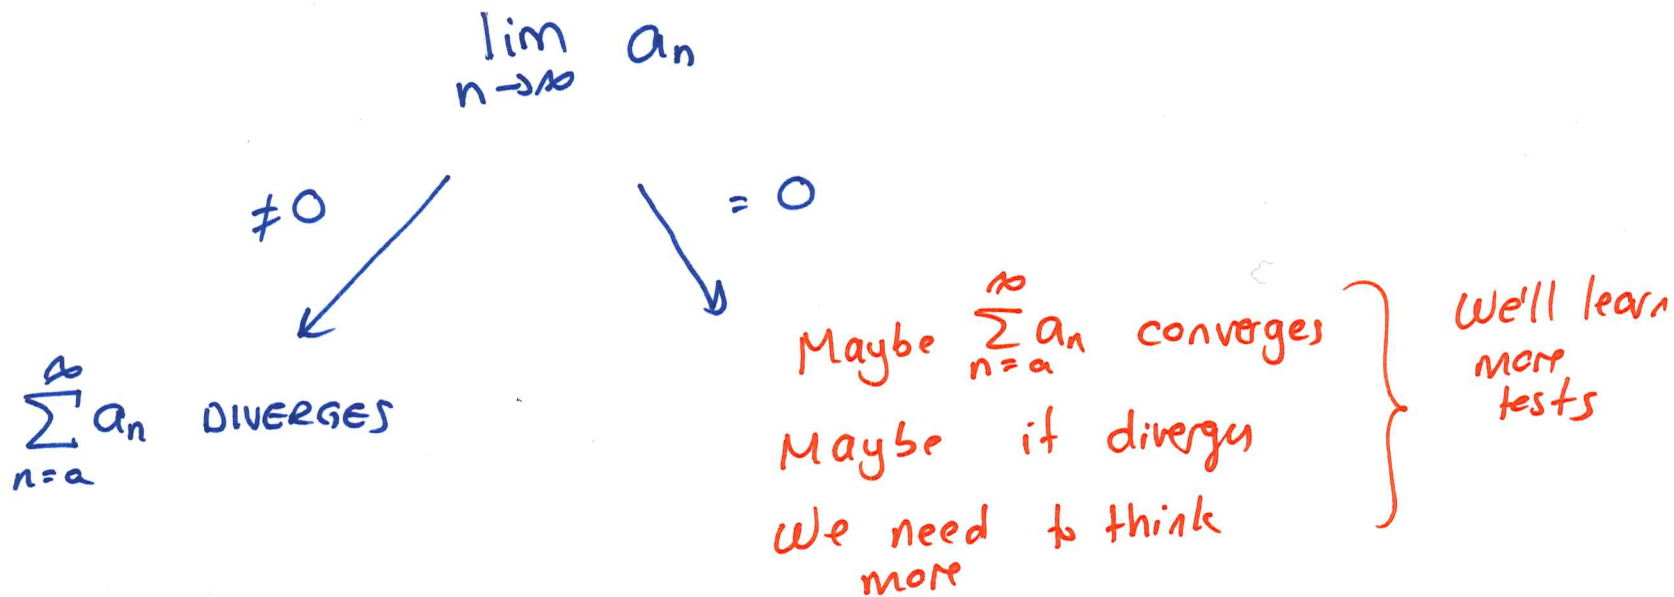 lim a_n
n→∞
≠ 0
= 0
∞
∑ a_n DIVERGES
n=a
∞
Maybe ∑ a_n converges
n=a
Maybe it diverges
We need to think
more
We'll learn
more
tests